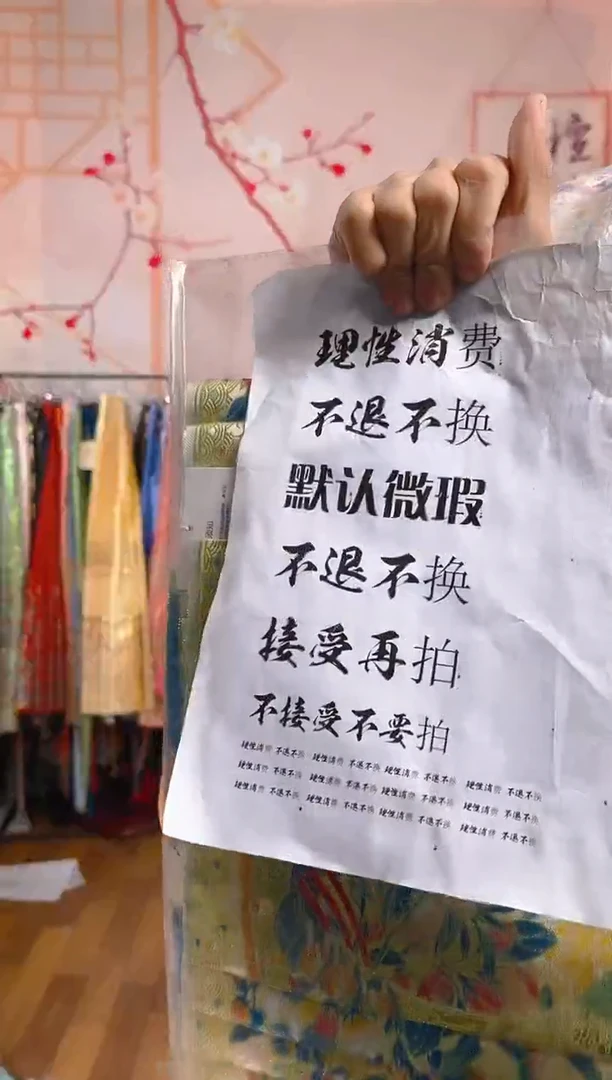 壇
理性消费
不退不换
默认微瑕
不退不换
接受再拍
不接受不要拍
理性消费 不退不换 理性消费 不退不换 理性消费 不退不换 理性消费 不退不换
理性消费 不退不换 理性消费 不退不换 理性消费 不退不换 理性消费 不退不换
理性消费 不退不换 理性消费 不退不换 理性消费 不退不换 理性消费 不退不换